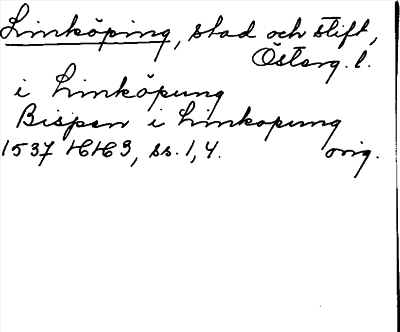 Linköping, stad och stift,
Österg. l.
i Linköpung
Bispen i Linkopung
1537 HH 3, ss. 1, 4. orig.